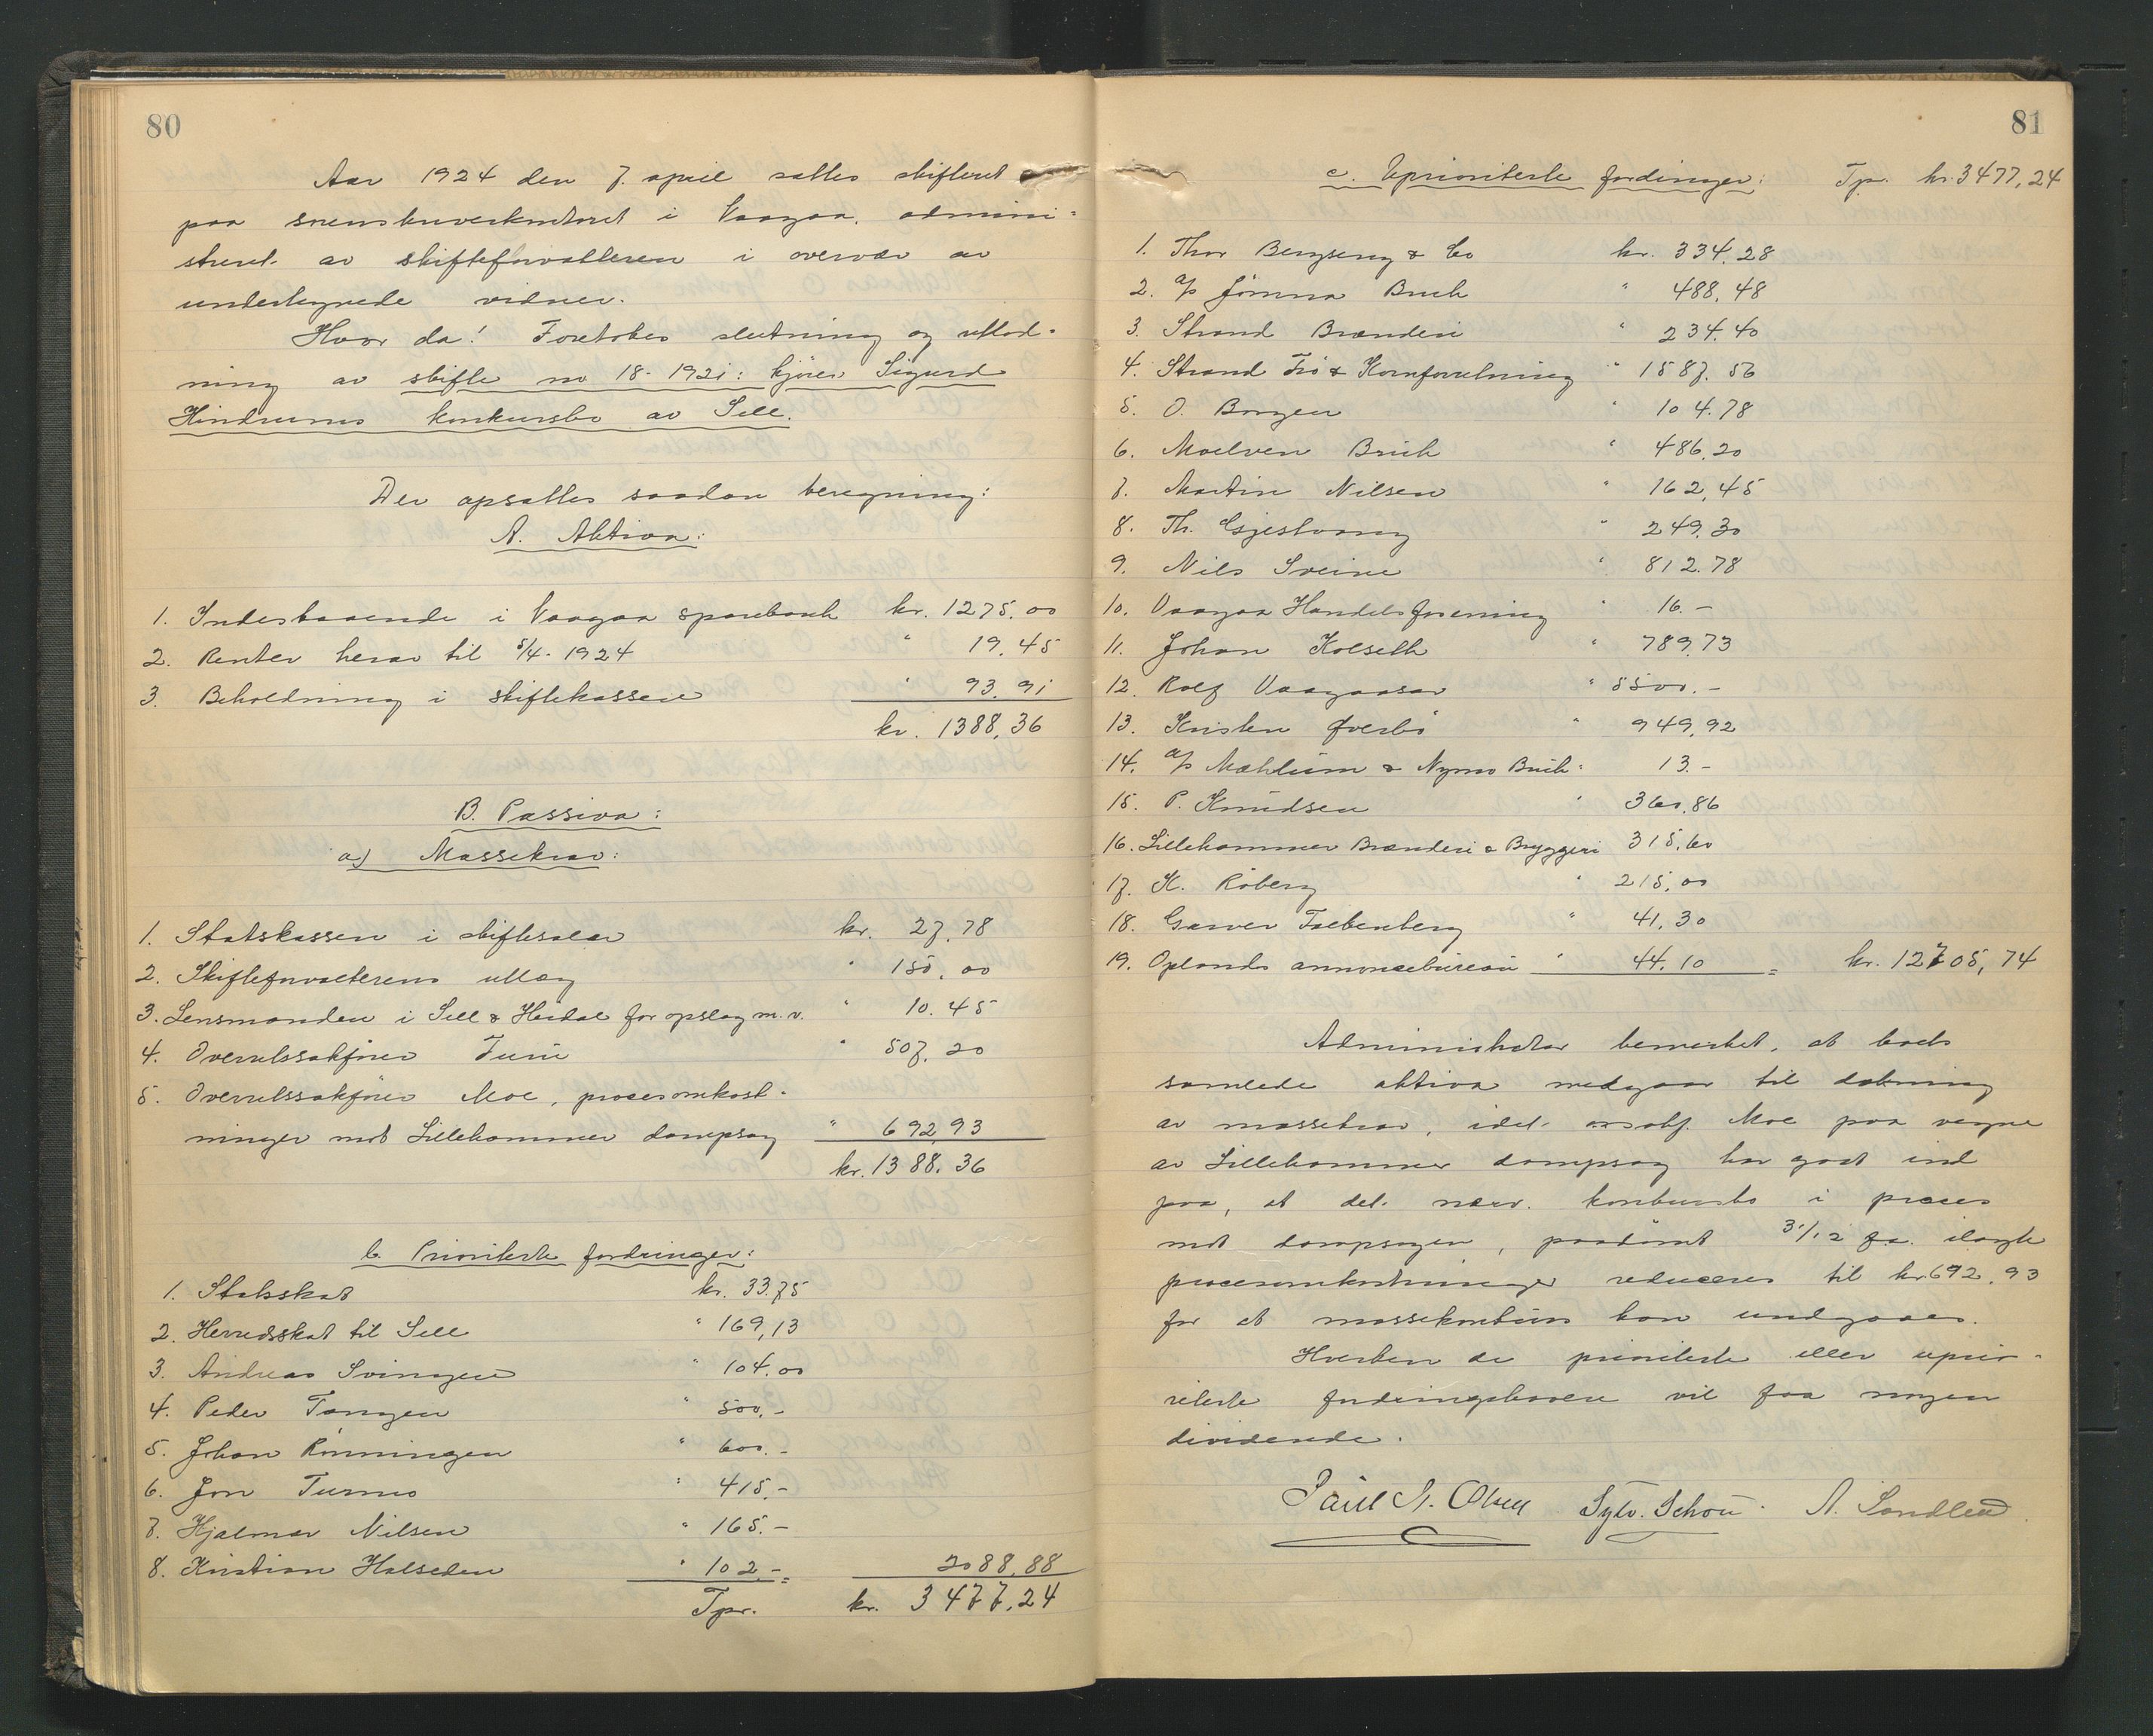 80
Aar 1924 den 7. april sattes skifteret
paa sorenskriverkontoret i Vaagaa, admini-
streret av skifteforvalteren i overvær av
undertegnede vidner.
Hvor da! Foretokes slutning og utlod-
ning av skifte no 18-1921: kjører Sigurd
Hindrums konkursbo av Sell.
Der opsattes saadan beregning:
A. Aktiva:
1. Indestaaende i Vaagaa sparebank kr. 1275.00
2. Renter herav til 5/4-1924 " 19.45
3. Beholdning i skiftekassen " 93.91
kr. 1388,36
B. Passiva:
a) Massekrav:
1. Statskassen i skiftesalær kr. 27.78
2. Skifteforvalterens utlæg " 150.00
3. Lensmanden i Sell & Heidal for opslag m.v. " 10.45
4. Overretssakfører " 507.20
5. Overretssakfører Moe, procesomkost-
ninger mot Lillehammer dampsag " 692,93
kr. 1388.36
b. Prioriterte fordringer:
1. Statsskat kr. 33.75
2. Herredsskat til Sell " 169,13
3. Andreas Svingen " 104.00
4. Peder Tangen " 500.-
5. Johan Rønningen " 600.-
6. Jon Turmo " 415.-
7. Hjalmar Nilsen " 165.-
8. Kristian Halseden " 102.- = 2088.88
Tpr. kr. 3477.24
81
c. Uprioriterte fordringer: Tpr. kr. 3477,24
1. Thor Bergseng & Co kr. 334.28
2. a/s Jømna Bruk " 488,48
3. Strand Brænderi " 234.40
4. Strand Frø & Kornforretning " 1587.56
5. O. Borgen " 104.78
6. Moelven Bruk " 486.20
7. Martin Nilsen " 162,45
8. Th. Gjestvang " 249.30
9. Nils Sveine " 812.78
10. Vaagaa Handelsforening " 16.-
11. Johan Kolseth " 789.73
12. Rolf Vaagaasar " 5500.-
13. Kristen Øverbø " 949,92
14. a/s Mæhlum & Nymo Bruk " 13.-
15. P. Knudsen " 360.86
16. Lillehammer Brænderi & Bryggeri 315.60
17. K. Røberg " 215.00
18. Garver Falkenberg " 41.30
19. Oplands annoncebureau " 44.10 = kr. 12705,74
Administrator bemerket, at boets
samlede aktiva medgaar til dækning
av massekrav, idet orsakf. Moe paa vegne
av Lillehammer dampsag har gaat ind
paa, at det nærv. konkursbo i proces
mot dampsagen, paadømt 31/12 f.a. ilagte
procesomkostninger reduceres til kr 692.93
for at massekonkurs kan undgaaes.
Hverken de prioriterte eller uprio-
riterte fordringshavere vil faa nogen
dividende.
Paul N. Olsen Sylv. Schou A. Sandlund